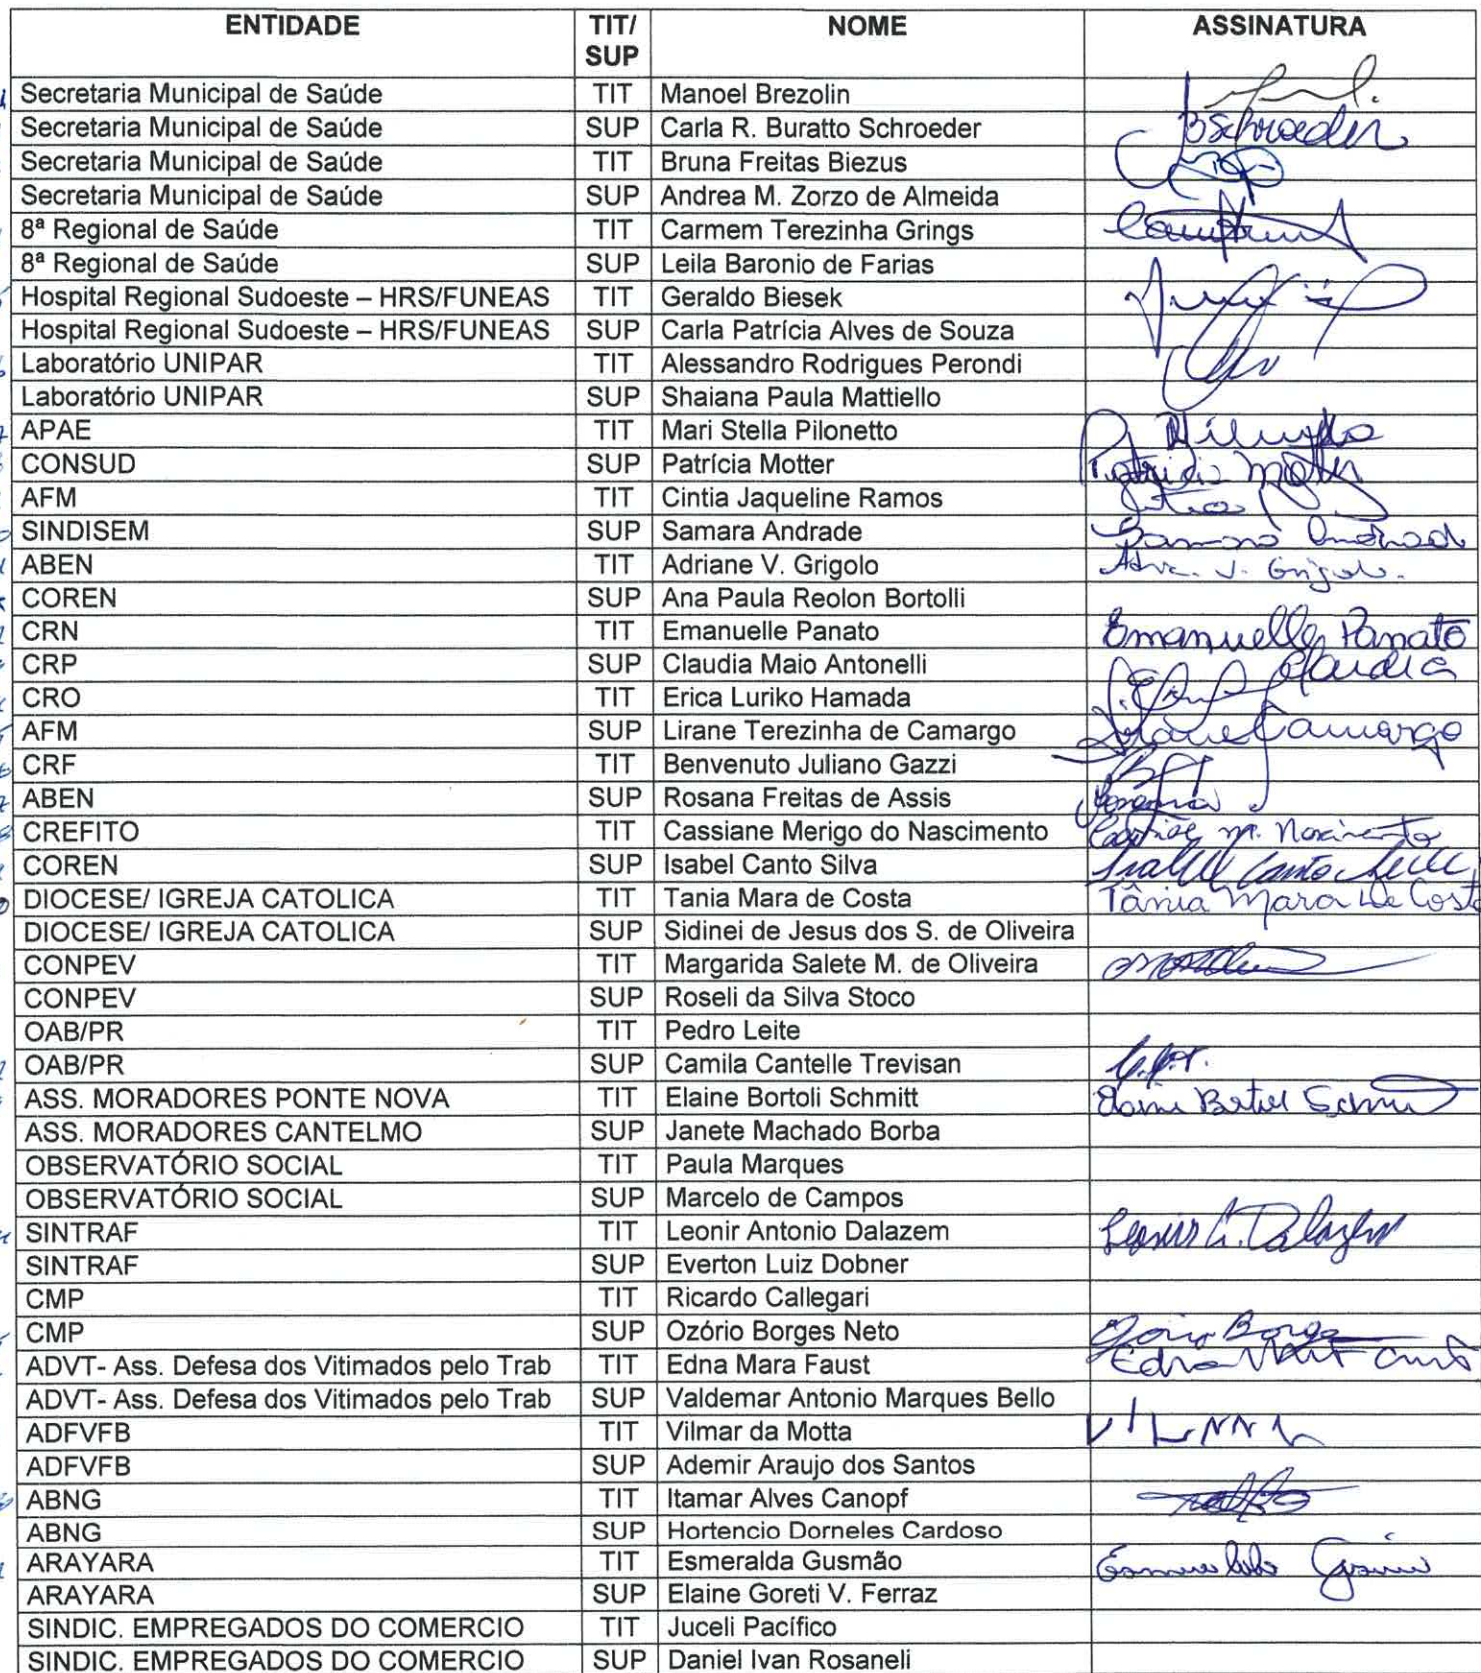 ENTIDADE TIT/ SUP NOME ASSINATURA
Secretaria Municipal de Saúde TIT Manoel Brezolin
Secretaria Municipal de Saúde SUP Carla R. Buratto Schroeder BSchroeder
Secretaria Municipal de Saúde TIT Bruna Freitas Biezus
Secretaria Municipal de Saúde SUP Andrea M. Zorzo de Almeida
8ª Regional de Saúde TIT Carmem Terezinha Grings
8ª Regional de Saúde SUP Leila Baronio de Farias
Hospital Regional Sudoeste – HRS/FUNEAS TIT Geraldo Biesek
Hospital Regional Sudoeste – HRS/FUNEAS SUP Carla Patrícia Alves de Souza
Laboratório UNIPAR TIT Alessandro Rodrigues Perondi
Laboratório UNIPAR SUP Shaiana Paula Mattiello
APAE TIT Mari Stella Pilonetto
CONSUD SUP Patrícia Motter Patricia Motter
AFM TIT Cintia Jaqueline Ramos
SINDISEM SUP Samara Andrade Samara Andrade
ABEN TIT Adriane V. Grigolo
COREN SUP Ana Paula Reolon Bortolli
CRN TIT Emanuelle Panato Emanuelle Panato
CRP SUP Claudia Maio Antonelli Claudia
CRO TIT Erica Luriko Hamada
AFM SUP Lirane Terezinha de Camargo Lirane Camargo
CRF TIT Benvenuto Juliano Gazzi
ABEN SUP Rosana Freitas de Assis
CREFITO TIT Cassiane Merigo do Nascimento Cassiane M. Nascimento
COREN SUP Isabel Canto Silva Isabel Canto Silva
DIOCESE/ IGREJA CATOLICA TIT Tania Mara de Costa Tânia Mara De Costa
DIOCESE/ IGREJA CATOLICA SUP Sidinei de Jesus dos S. de Oliveira
CONPEV TIT Margarida Salete M. de Oliveira
CONPEV SUP Roseli da Silva Stoco
OAB/PR TIT Pedro Leite
OAB/PR SUP Camila Cantelle Trevisan
ASS. MORADORES PONTE NOVA TIT Elaine Bortoli Schmitt
ASS. MORADORES CANTELMO SUP Janete Machado Borba
OBSERVATÓRIO SOCIAL TIT Paula Marques
OBSERVATÓRIO SOCIAL SUP Marcelo de Campos
SINTRAF TIT Leonir Antonio Dalazem Leonir A. Dalazem
SINTRAF SUP Everton Luiz Dobner
CMP TIT Ricardo Callegari
CMP SUP Ozório Borges Neto
ADVT- Ass. Defesa dos Vitimados pelo Trab TIT Edna Mara Faust
ADVT- Ass. Defesa dos Vitimados pelo Trab SUP Valdemar Antonio Marques Bello
ADFVFB TIT Vilmar da Motta
ADFVFB SUP Ademir Araujo dos Santos
ABNG TIT Itamar Alves Canopf
ABNG SUP Hortencio Dorneles Cardoso
ARAYARA TIT Esmeralda Gusmão
ARAYARA SUP Elaine Goreti V. Ferraz
SINDIC. EMPREGADOS DO COMERCIO TIT Juceli Pacífico
SINDIC. EMPREGADOS DO COMERCIO SUP Daniel Ivan Rosaneli